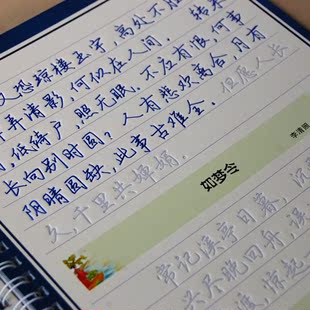 又恐琼楼玉宇，高处不胜
弄清影，何似在人间。 转朱
，低绮户，照无眠。不应有恨，何事
长向别时圆？人有悲欢离合，月有
阴晴圆缺，此事古难全。但愿人长
久，千里共婵娟。
如梦令
李清照
常记溪亭日暮，沉
兴尽晚回舟，误
渡，惊起